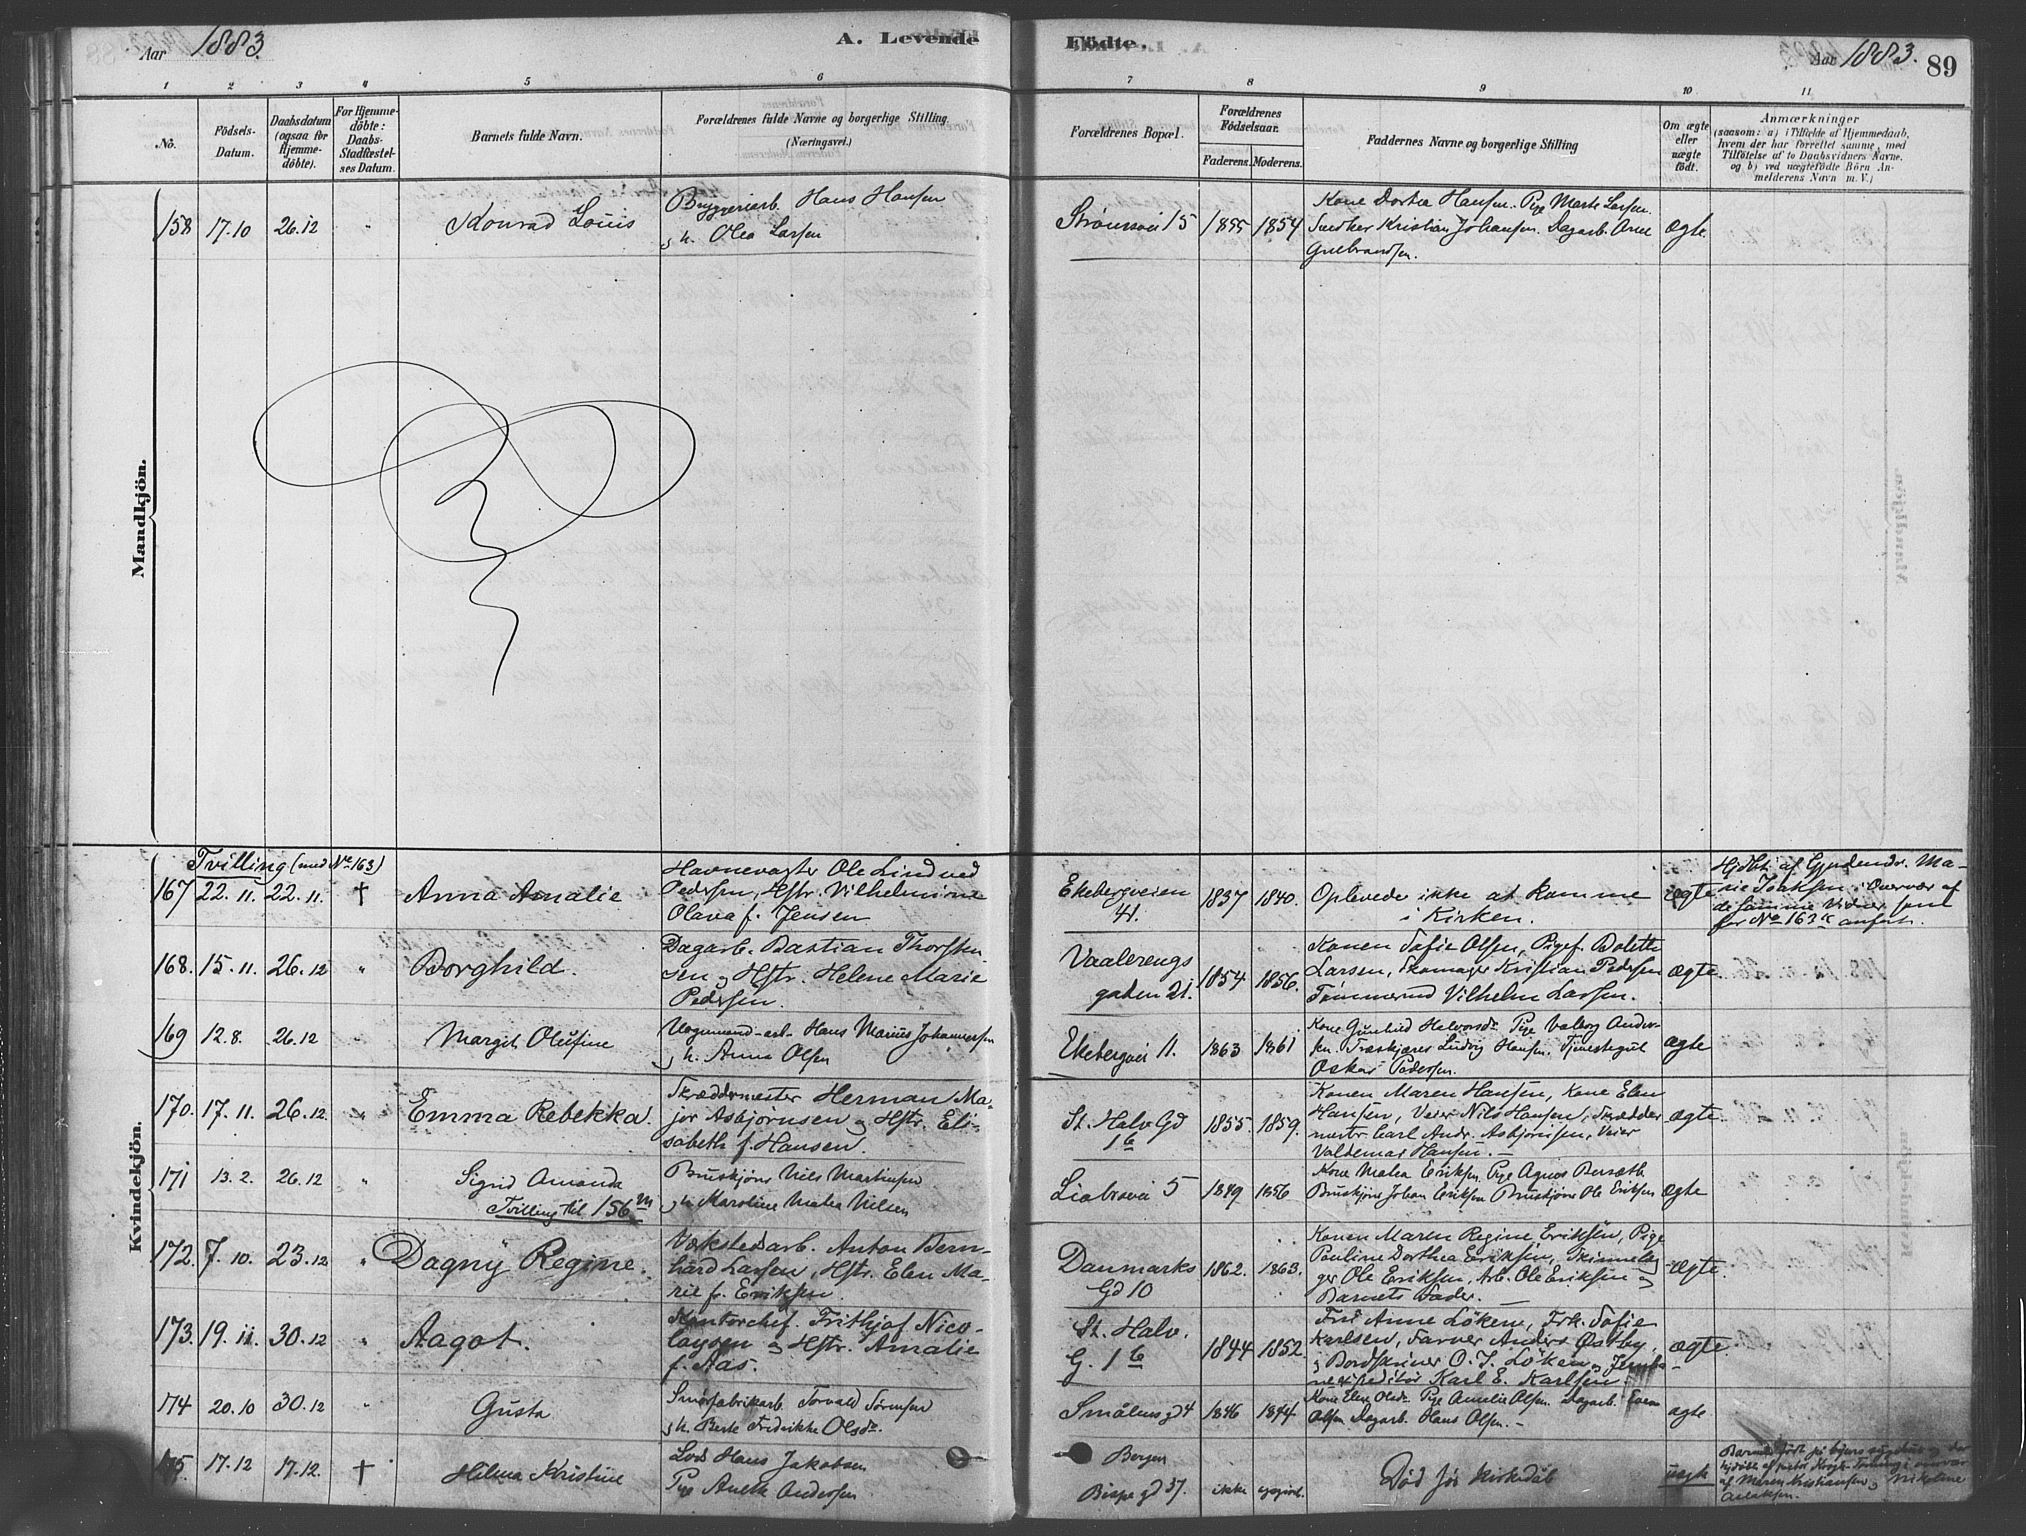 Aar 1883.
A. Levende
Födte.
Aar 1883.
89
1 2 3 4 5 6 7 8 9 10 11
No.
Födsels-Datum.
Daabsdatum (ogsaa for Hjemme-döbte).
For Hjemme-döbte: Daabs-Stadfæstel-ses Datum.
Barnets fulde Navn.
Forældrenes fulde Navne og borgerlige Stilling
(Næringsvei.)
Forældrenes Bopæl.
Forældrenes Födselsaar.
Faderens. Moderens.
Faddernes Navne og borgerlige Stilling
Om ægte eller uægte födt.
Anmærkninger
(saasom: a) i Tilfælde af Hjemmedaab,
hvem der har forrettet samme, med
Tilföielse af to Daabsvidners Navne,
og b) ved uægtefödte Börn An-
melderens Navn m. V.)
Mandkjön.
158 17.10 26.12 " Konrad Louis
Bryggeriarb. Hans Hansen
og h. Olea Larsen
Strömsvei 15 1855 1854
Kone Dortea Hansen. Pige Marte Larsen.
Snedker Kristian Johansen. Dagarb.
Gulbrandsen.
ægte
Kvindekjön.
Tvilling (med No 163)
167 22.11. 22.11. † Anna Amalie
Havnevagter Ole Lindved
Pedersen, Hstr. Vilhelmine
Olava f. Jensen
Ekebergveien
41.
1837 1840.
Oplevede ikke at komme
i Kirken.
ægte
Hjdbt. af Gjordemdr. Ma-
rie Isaksen i Overvær af
de samme Vidner som
for No 163 anfört.
168. 15.11. 26.12 " Borghild.
Dagarb. Bastian Thorsten-
sen og Hstr. Helene Marie
Pedersen.
Vaalerengs
gaden 21.
1854 1856.
Konen Sofie Olsen, Pigef. Bolette
Larsen, Skomager Kristian Pedersen
Tömmermd Vilhelm Larsen.
ægte.
169 12.8. 26.12 " Margit Olufine
Vognmand-arb. Hans Marius Johannessen
og h. Anna Olsen
Ekebergvei 11. 1863 1861
Kone Gunhild Halvorsdr. Pige Valborg Ander-
sen. Træskjærer Ludvig Hansen. Tjenestegut
Oskar Pedersen.
ægte
170. 17.11. 26.12 " Emma Rebekka.
Skræddermester Herman Ma-
jor Asbjørnsen og Hstr. Eli-
sabeth f. Hansen.
St. Halv Gd
1b
1855. 1859.
Konen Maren Hansen, Kone Elen
Hansen, Veier Nils Hansen, Skrædder
mester Carl Andr. Asbjørnsen, Veier
Valdemar Hansen. —
ægte.
171 13.2. 26.12 " Sigrid Amanda
Tvilling til 156m
Buntskjörer Nils Martinsen
og h. Karoline Matea Nilsen
Liabrovei 5 1849 1856
Kone Matea Eriksen. Pige Agnes
Johan Eriksen Ole Eriksen
ægte
172. 7.10. 23.12 " Dagny Regine.
Værkstedarb. Anton Bern-
hard Larsen, Hstr. Elen Ma-
rie f. Eriksen.
Danmarks
Gd 10
1862. 1863.
Konen Maren Regine Eriksen, Pige
Pauline Dorthea Eriksen,
Ole Eriksen, Arb. Ole Eriksen og
Barnets Fader. —
ægte.
173. 19.11. 30.12 " Aagot.
Kontorchef. Frithjof Nico-
laysen og Hstr. Amalie
f. Aas.
St. Halv.
G. 1b
1844 1852.
Fru Anne Löken, Frk. Sofie
Karlsen, Farver Anders Østby,
og Bordskriver O. J. Löken og Jernba-
neexpeditör Karl E. Karlsen. —
ægte.
174 20.10 30.12 " Gusta
Smörfabrikarb. Torvald Sörensen
og h. Berte Fredrikke Olsdr.
Smålensgd 4 1846 1844
Kone Elen Olsdr. Pige Amalie Olsen Dagarb. Even
Olsen Dagarb. Hans Olsen. —
ægte
175. 17.12 17.12. † Hilma Kristine
Lods Hans Jakobsen
Pige Anette Andersen
Bergen
Bispegd 37. ikke opgivet.
Död för Kirkedåb
uægte
Barnet födt på byens sygehus og der
hjdöbt af pastor i overvær
af Maren Kristiansen og Nikoline